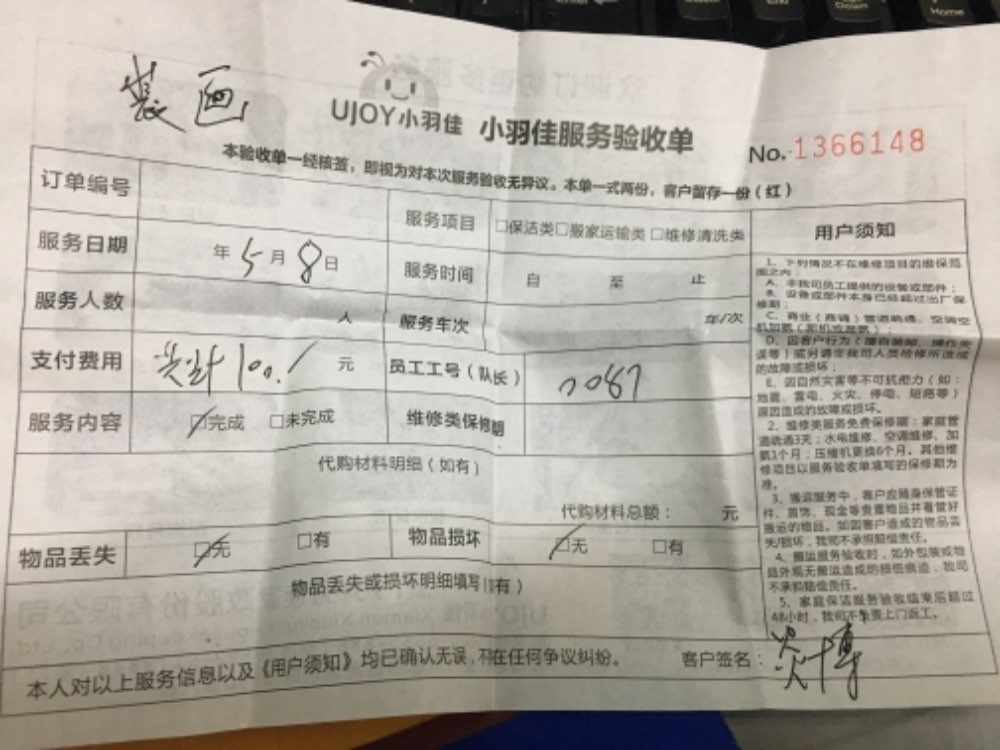 装画
UJOY小羽佳 小羽佳服务验收单
No.1366148
本验收单一经核签，即视为对本次服务验收无异议。本单一式两份，客户留存一份（红）
订单编号
服务项目 □保洁类□搬家运输类 □维修清洗类
服务日期 年5月8日
服务时间 自 至 止
服务人数 人
服务车次 车/次
支付费用 共计100. 元
员工工号（队长） 7087
服务内容 □完成 □未完成
维修类保修期
代购材料明细（如有）
代购材料总额： 元
物品丢失 □无 □有
物品损坏 □无 □有
物品丢失或损坏明细填写 有）
本人对以上服务信息以及《用户须知》均已确认无误，不在任何争议纠纷。
客户签名：
用户须知
1、下列情况不在维修项目的维保范
围之内：
A、非我司员工提供的设备或部件；
B、设备或部件本身已经超过出厂保
修期；
C、商业（商铺）管道疏通、空调空
机加氨
D、因客户行为（擅自装卸、操作失
误等）或另请非我司人员检修所造成
的故障或损坏；
E、因自然灾害等不可抗拒力（如：
地震、雷电、火灾、停电、短路等）
原因造成的故障或损坏。
2、维修类服务免费保修期：家庭管
道疏通3天；水电维修、空调维修、加
氨1个月；压缩机更换6个月。其他维
修项目以服务验收单填写的保修期为
准。
3、搬运服务中，客户应随身保管证
件、首饰、现金等贵重物品并看管好
搬运的物品。如因客户造成的物品丢
失/损坏，我司不承担赔偿责任。
4、搬运服务验收时，如外包装或物
品外观无搬运造成的损伤痕迹，我司
不承担赔偿责任。
5、家庭保洁服务验收结束后超过
48小时，我司不负责上门返工。